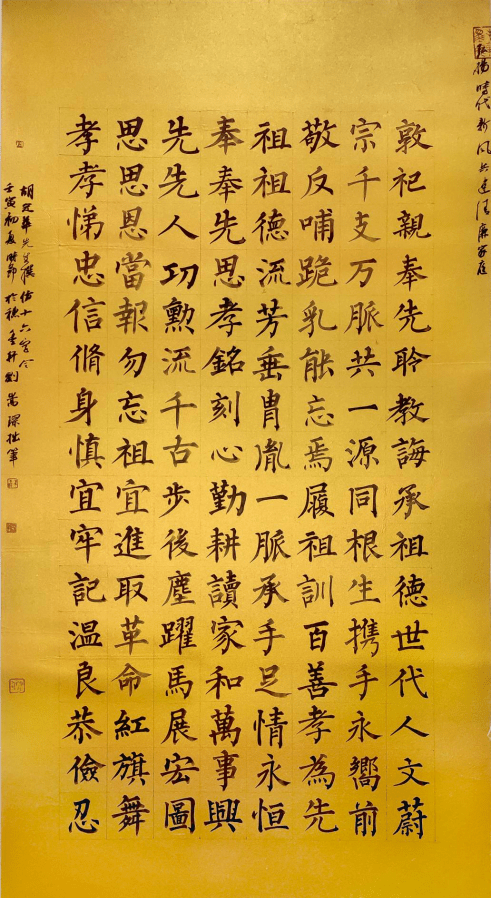 揚時代新風共建清廉家庭
敦祀親奉先聆教誨承祖德世代人文蔚
宗千支万脈共一源同根生携手永嚮前
敬反哺跪乳能忘焉履祖訓百善孝為先
祖祖德流芳垂胄胤一脈承手足情永恒
奉奉先思孝銘刻心勤耕讀家和萬事興
先先人功勳流千古步後塵躍馬展宏圖
思思恩當報勿忘祖宜進取革命紅旗舞
孝孝悌忠信脩身慎宜牢記温良恭儉忍
胡定華先生撰十六字令
壬寅初夏時節於劉拙筆